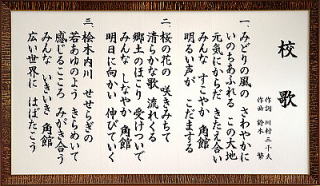 校歌
作詞 川村三千夫
作曲 鈴木 繁
一、みどりの風の さわやかに
いのちあふれる この大地
元気にからだ きたえ合い
みんな すこやか 角館
明るい声が こだまする
二、桜の花の 咲きみちて
清らかな歌 流れくる
郷土のほこり 受けついで
みんな しなやか 角館
明日に向かい 伸びていく
三、桧木内川 せせらぎの
若あゆのよう きらめいて
感じるこころ みがき合う
みんな いきいき 角館
広い世界に はばたこう